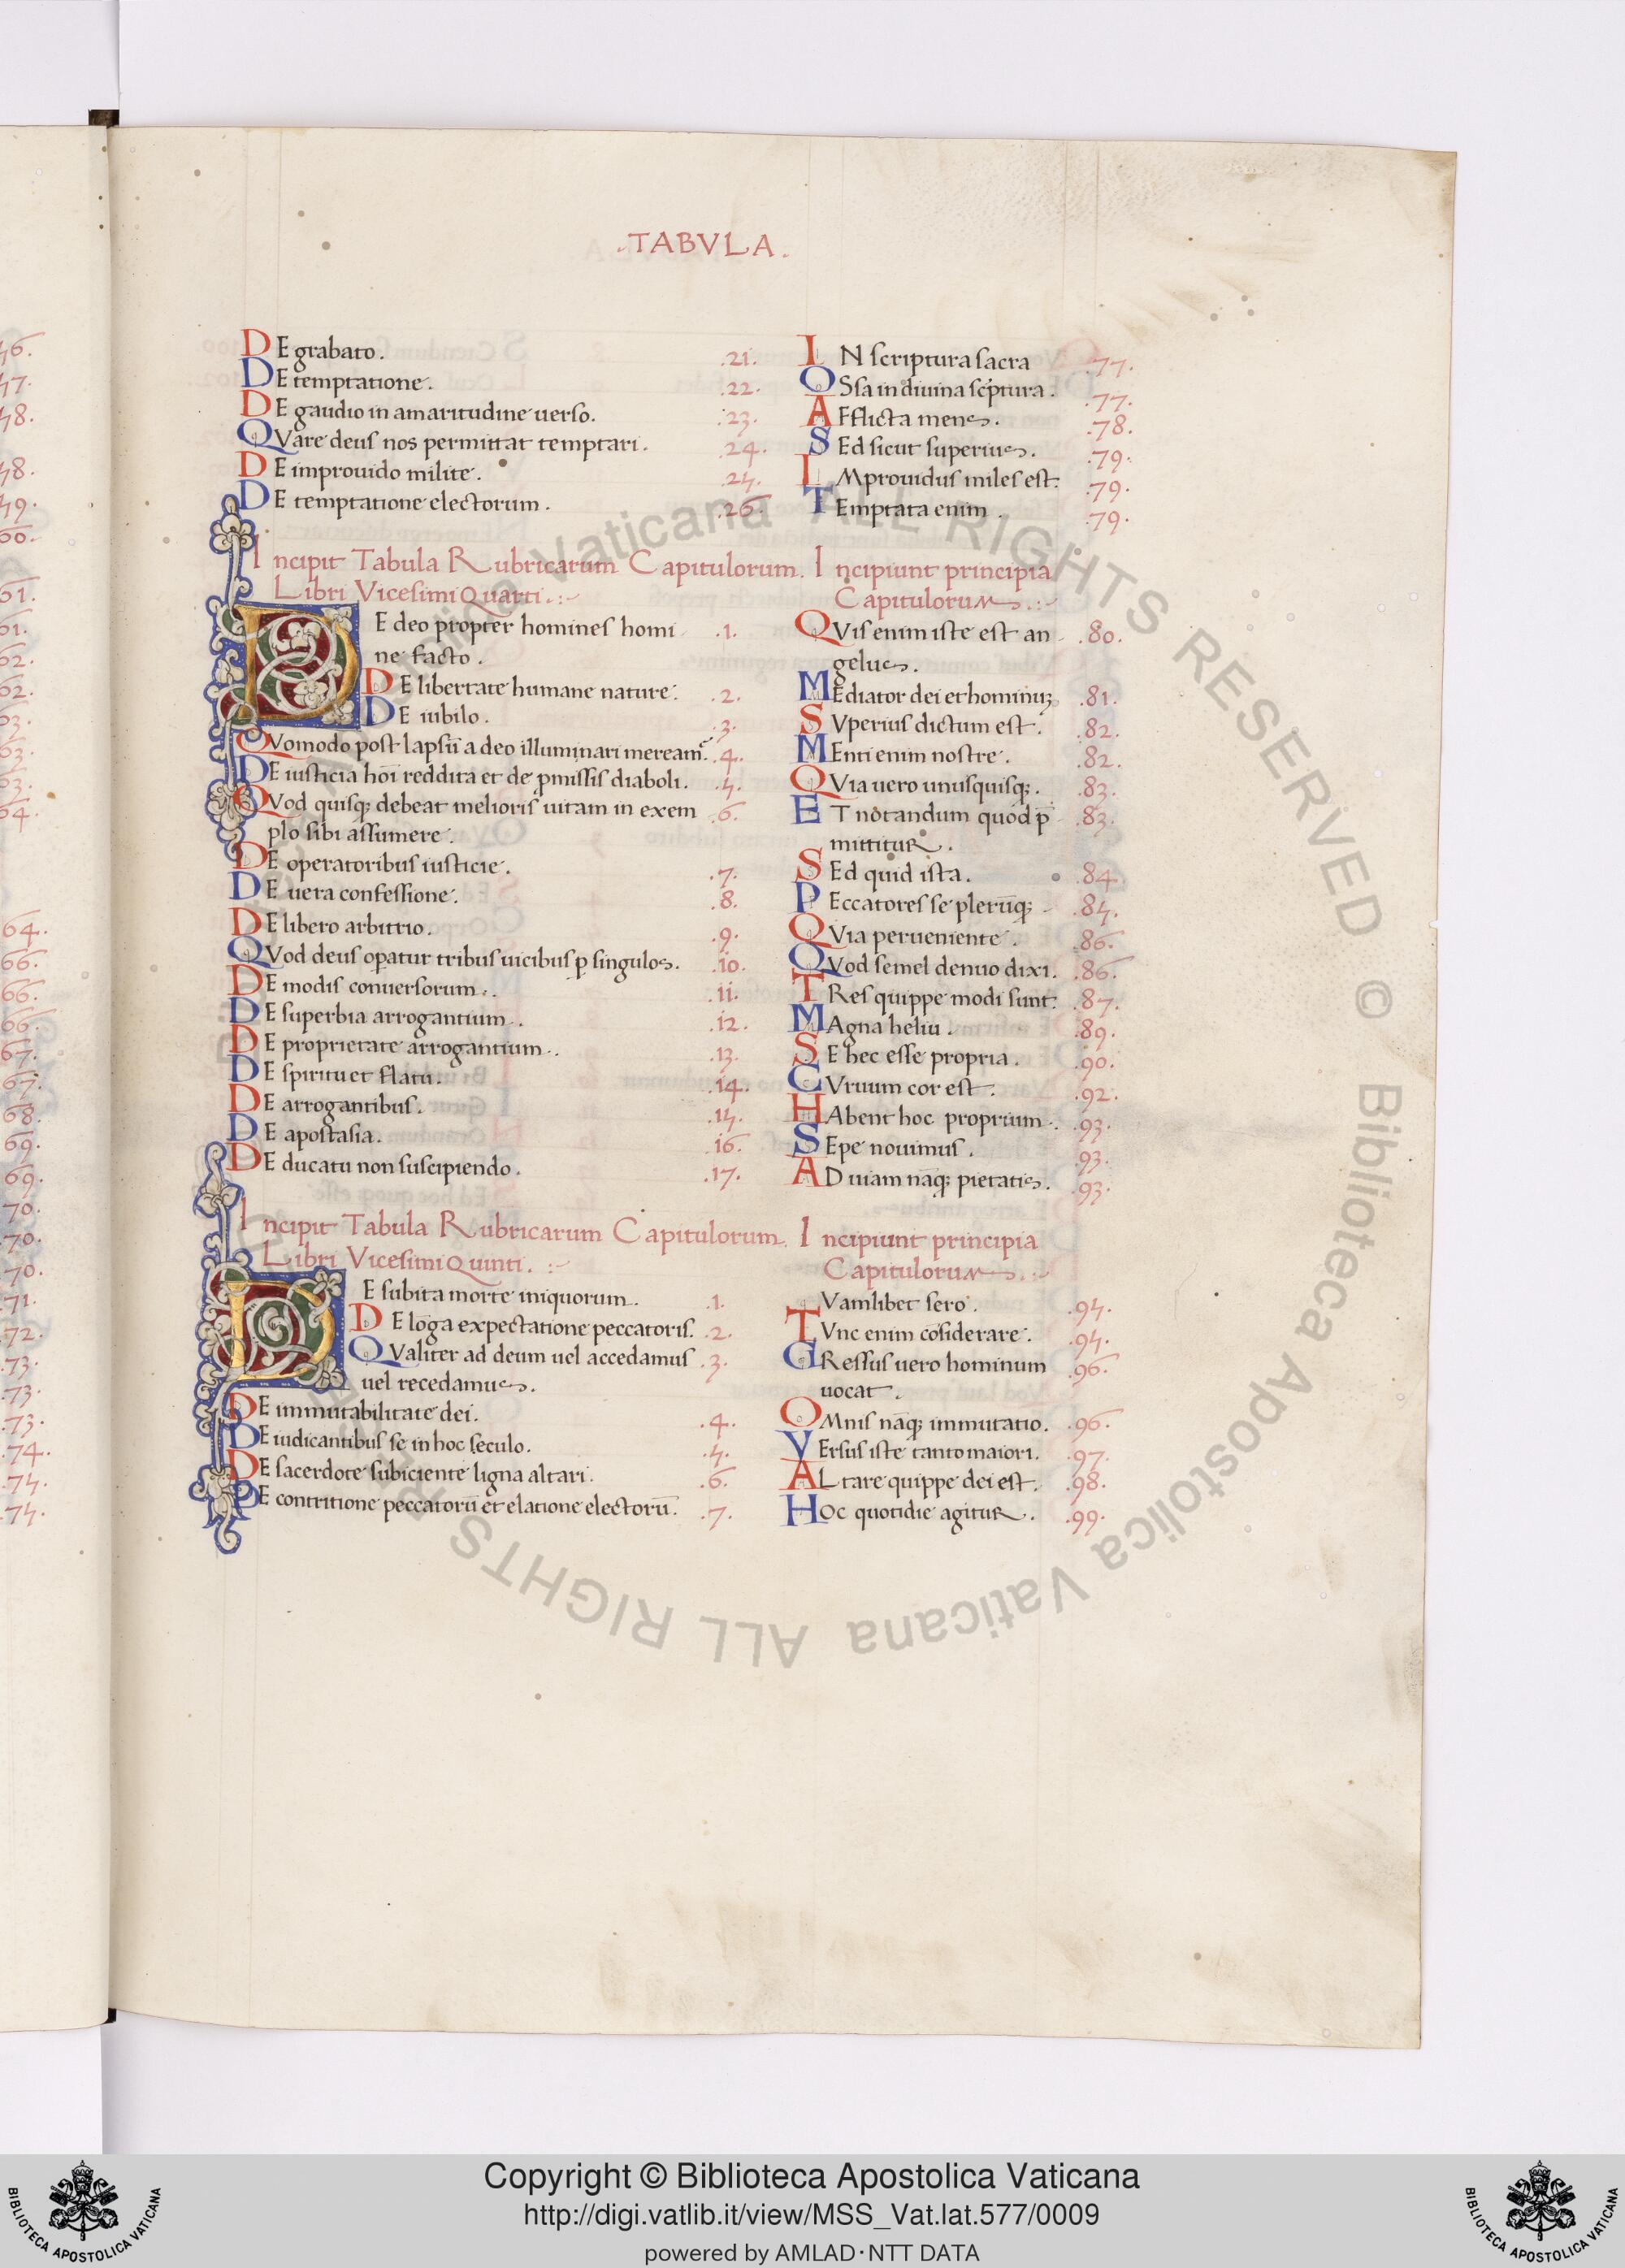 .TABVLA.
DE grabato. .21. IN scriptura sacra .77.
DE temptatione. .22. OSsa in diuina scptura. .77.
DE gaudio in amaritudine uerso. .23. AFflicta mens. .78.
QVare deus nos permittat temptari. .24. SEd sicut superius. .79.
DE improuido milite. .25. IMprouidus miles est. .79.
DE temptatione electorum. .26. TEmptata enim. .79.
Incipit Tabula Rubricarum Capitulorum. Incipiunt principia
Libri Vicesimi Quarti. Capitulorum.
DE deo propter homines homi .1. QVis enim iste est an .80.
ne facto. gelus.
DE libertate humane nature. .2. MEdiator dei et hominuꝫ .81.
DE iubilo. .3. SVperius dictum est. .82.
QVomodo post lapsū a deo illuminari meream̃. .4. MEnti enim nostre. .82.
DE iusticia hoī reddita et de ꝓmissis diaboli. .5. QVia uero unusquisqꝫ. .83.
QVod quisqꝫ debeat melioris uitam in exem .6. ET notandum quod p̄ .83.
plo sibi assumere. mittitur.
DE operatoribus iusticie. .7. SEd quid ista. .84.
DE uera confessione. .8. PEccatores se plerūqꝫ .85.
DE libero arbitrio. .9. QVia perueniente. .86.
QVod deus oꝑatur tribus uicibus ꝑ singulos. .10. QVod semel denuo dixi. .86.
DE modis conuersorum. .11. TRes quippe modi sunt. .87.
DE superbia arrogantium. .12. MAgna heliu. .89.
DE proprietate arrogantium. .13. SE hec esse propria. .90.
DE spiritu et flatu. .14. CVruum cor est. .92.
DE arrogantibus. .15. HAbent hoc proprium. .93.
DE apostasia. .16. SEpe nouimus. .93.
DE ducatu non suscipiendo. .17. AD uiam nāqꝫ pietatis. .93.
Incipit Tabula Rubricarum Capitulorum. Incipiunt principia
Libri Vicesimi Quinti. Capitulorum.
DE subita morte iniquorum. .1. Vamlibet sero. .94.
DE lōga expectatione peccatoris. .2. TVnc enim cōsiderare. .95.
QValiter ad deum uel accedamus .3. GRessus uero hominum .96.
uel recedamus. uocat.
DE immutabilitate dei. .4. OMnis nāqꝫ immutatio. .96.
DE iudicantibus se in hoc seculo. .5. VErsus iste tanto maiori. .97.
DE sacerdote subiciente ligna altari. .6. ALtare quippe dei est. .98.
DE contritione peccatorū et elatione electorū. .7. HOc quotidie agitur. .99.
Copyright © Biblioteca Apostolica Vaticana
http://digi.vatlib.it/view/MSS_Vat.lat.577/0009
powered by AMLAD·NTT DATA
BIBLIOTECA APOSTOLICA VATICANA
BIBLIOTECA APOSTOLICA VATICANA